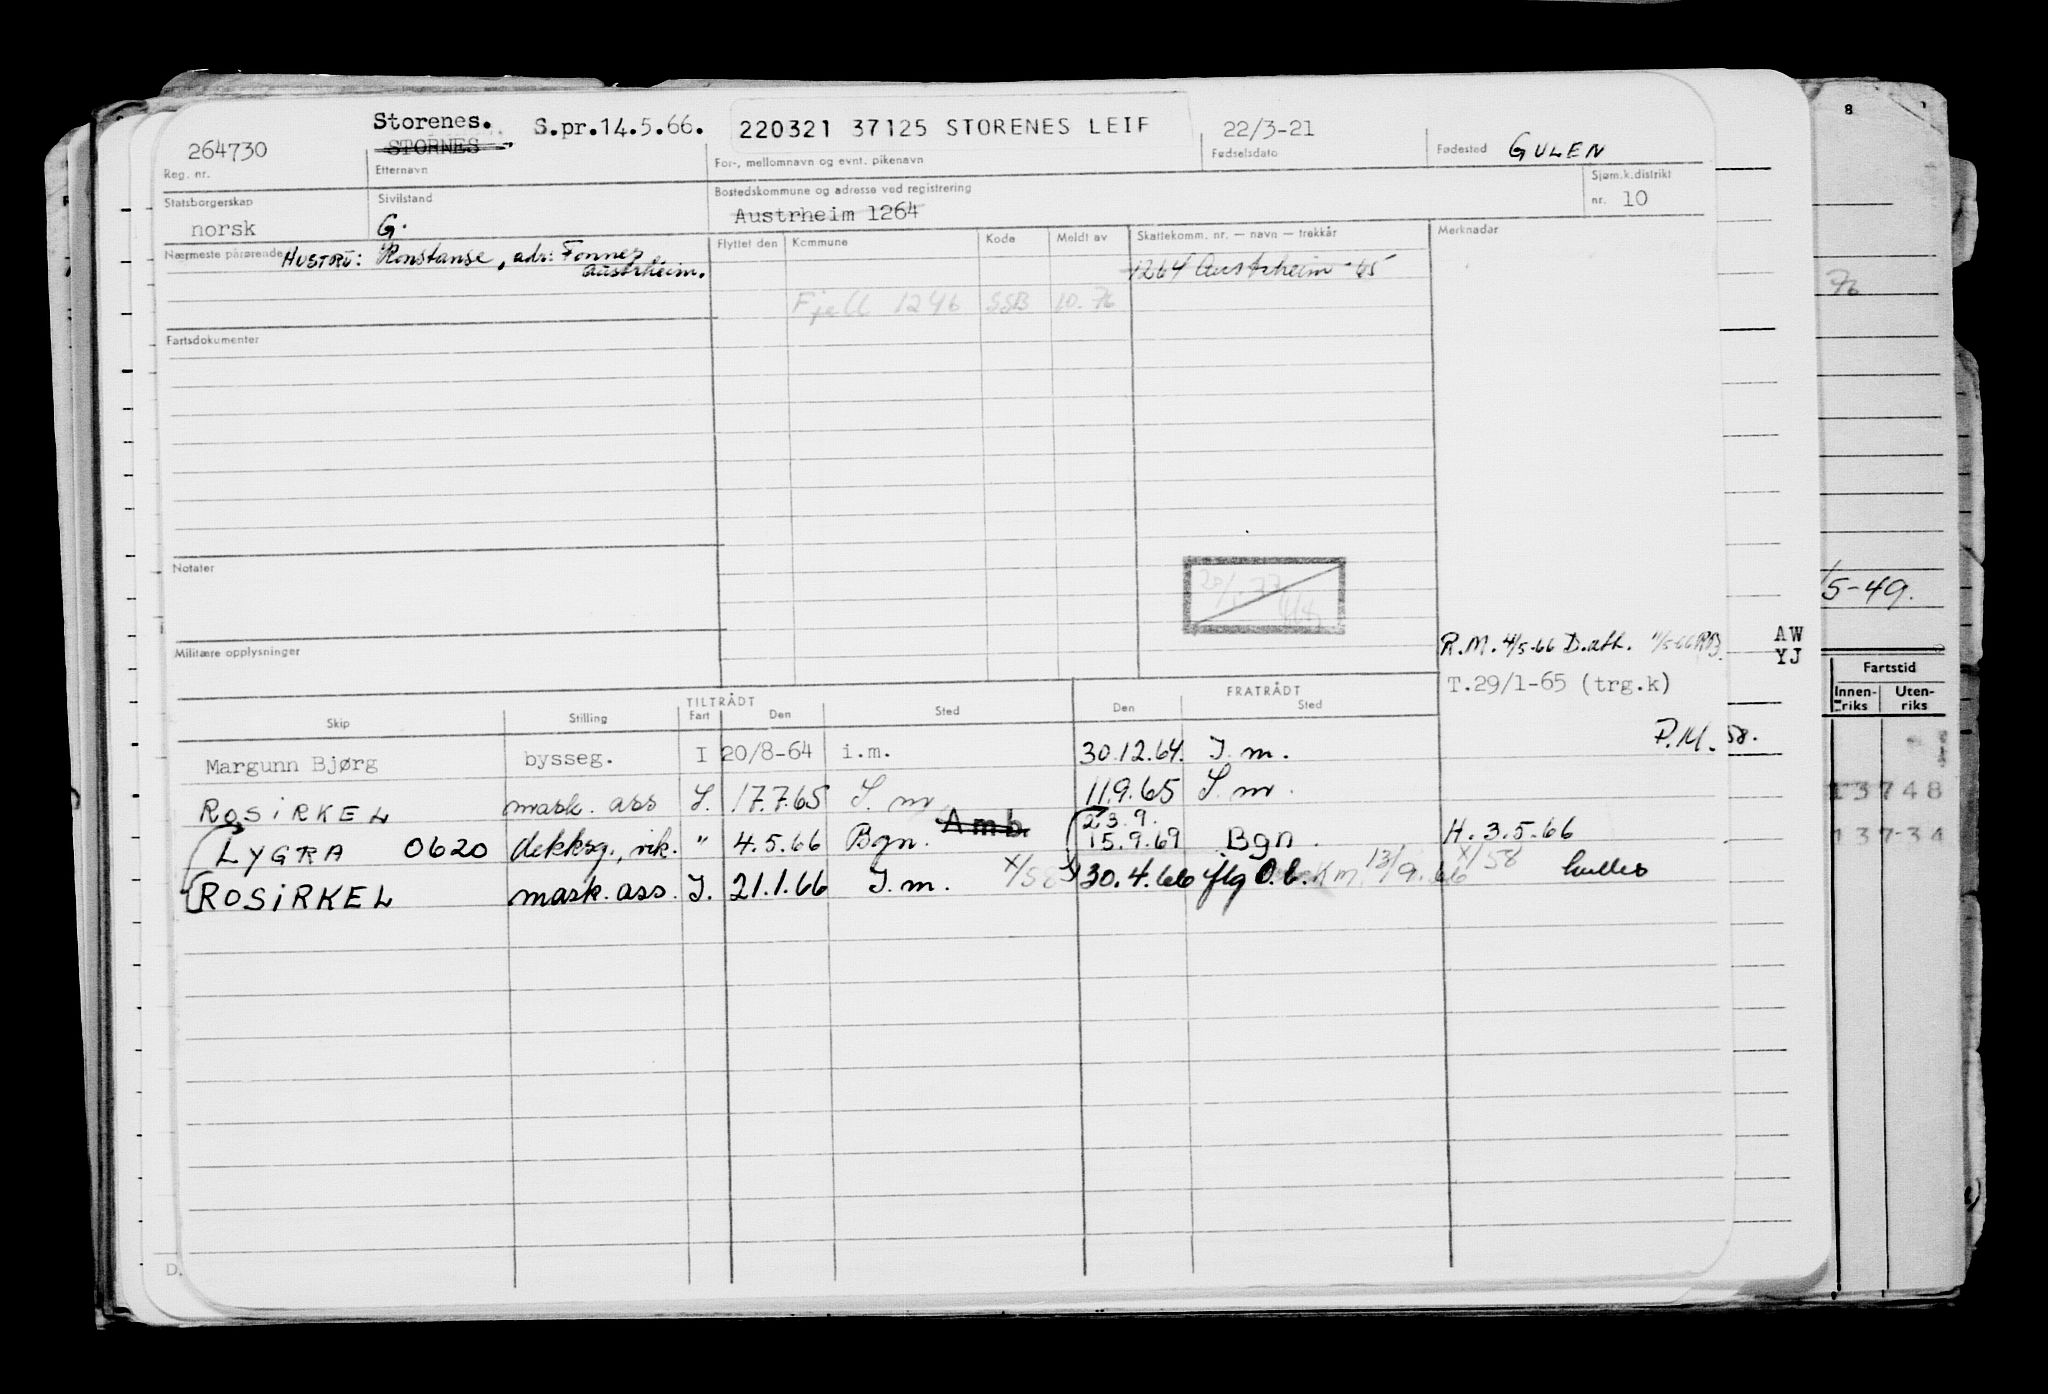 264730 Storenes. S.pr.14.5.66. 220321 37125 STORENES LEIF 22/3-21 Fødested GULEN
STORNES
Reg. nr. Etternavn For-, mellomnavn og evnt. pikenavn Fødselsdato
Statsborgerskap Sivilstand Bostedskommune og adresse ved registrering Sjøm.k.distrikt
norsk G. Austrheim 1264 nr. 10
Nærmeste pårørende HUSTRU: Konstanse, adr: Fonnes Flyttet den Kommune Kode Meldt av Skattekomm. nr. — navn — trekkår Merknader
Austrheim. 1264 Austrheim - 65
Fjell 1246 SSB 10. 76
76
Fartsdokumenter
Notater
5-49.
Militære opplysninger R.M. 4/5-66 D.ath. 11/5-66 RB. AW
YJ
T.29/1-65 (trg.k)
Fartstid
Innen-riks Uten-riks
TILTRÅDT FRATRÅDT
Skip Stilling Fart Den Sted Den Sted
P.M. 58.
Margunn Bjørg bysseg. I 20/8-64 i.m. 30.12.64. I.m.
ROSIRKEL mask. ass I. 17.7.65 I.m. 11.9.65 I.m.
13748
23.9.
LYGRA 0620 dekksg., vik. " 4.5.66 Bgn. Amb. 15.9.69 Bgn. H. 3.5.66
13734
ROSIRKEL mask. ass. I. 21.1.66 I.m. X/58 30.4.66 iflg O.b. K m. 13/9.66 X/58
D.
8